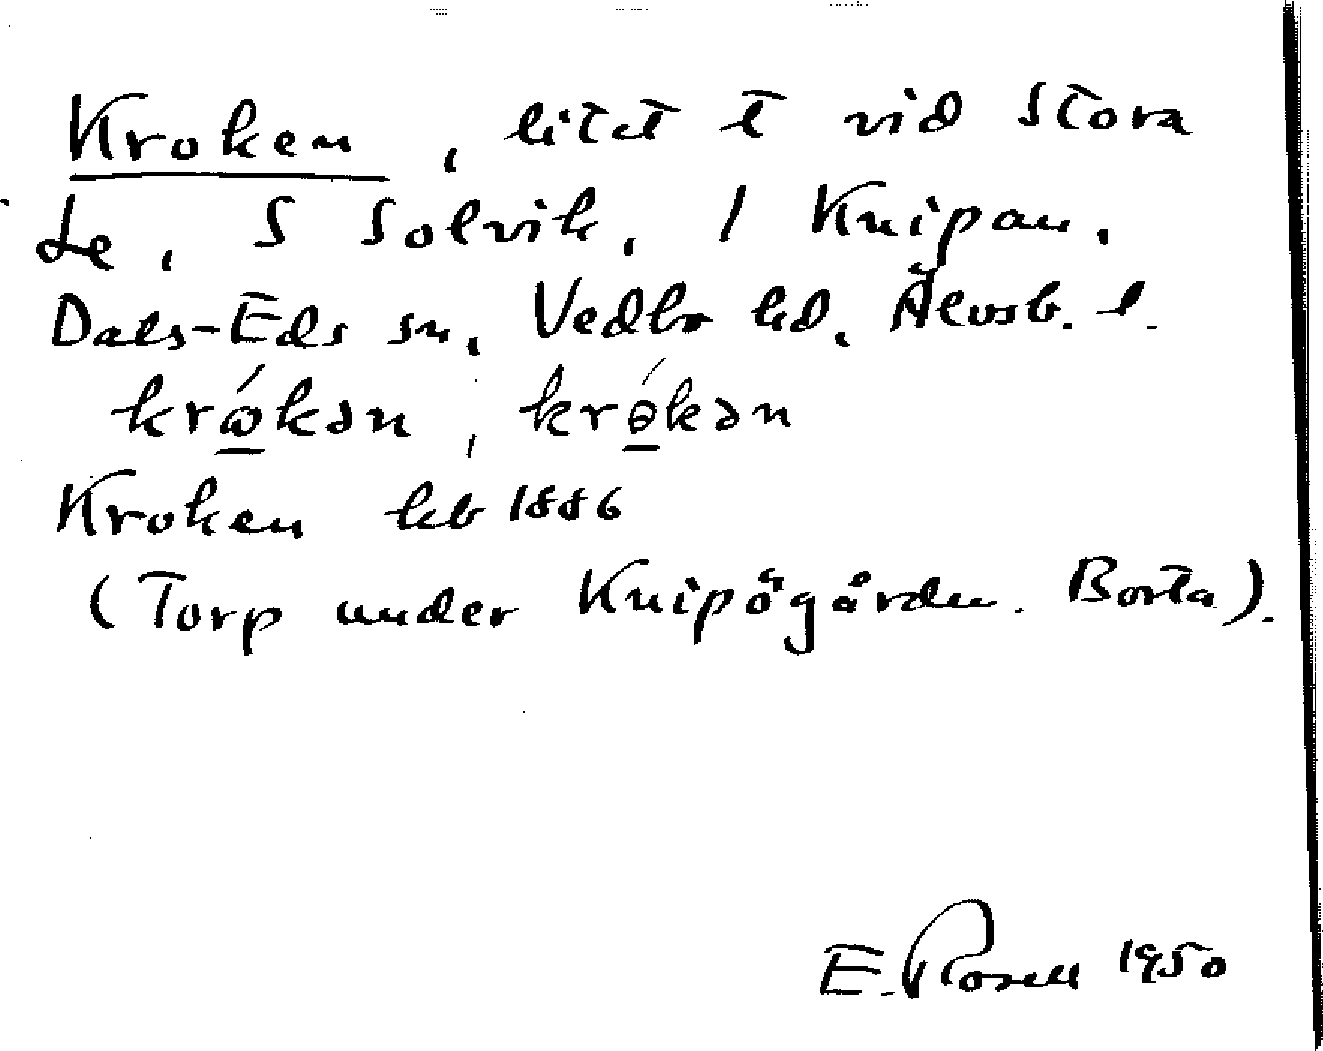 Kroken, litet t vid Stora
Le, S Solvik, / Knipan.
Dals-Eds sn, Vedbo hd, Älvsb. l.
krώ̲kən, krɵ̲́kən
Kroken kb 1886
(Torp under Knipögården. Borta).
E. Rosell 1950